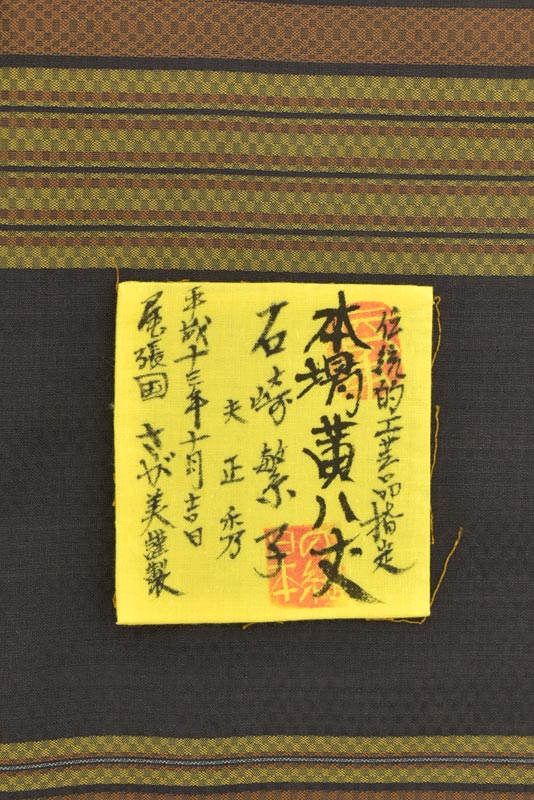 伝統的工芸品指定
本場黄八丈
石崎繁子
夫正秀
平成十三年十月吉日
尾張国 きが美謹製
の絹
日本